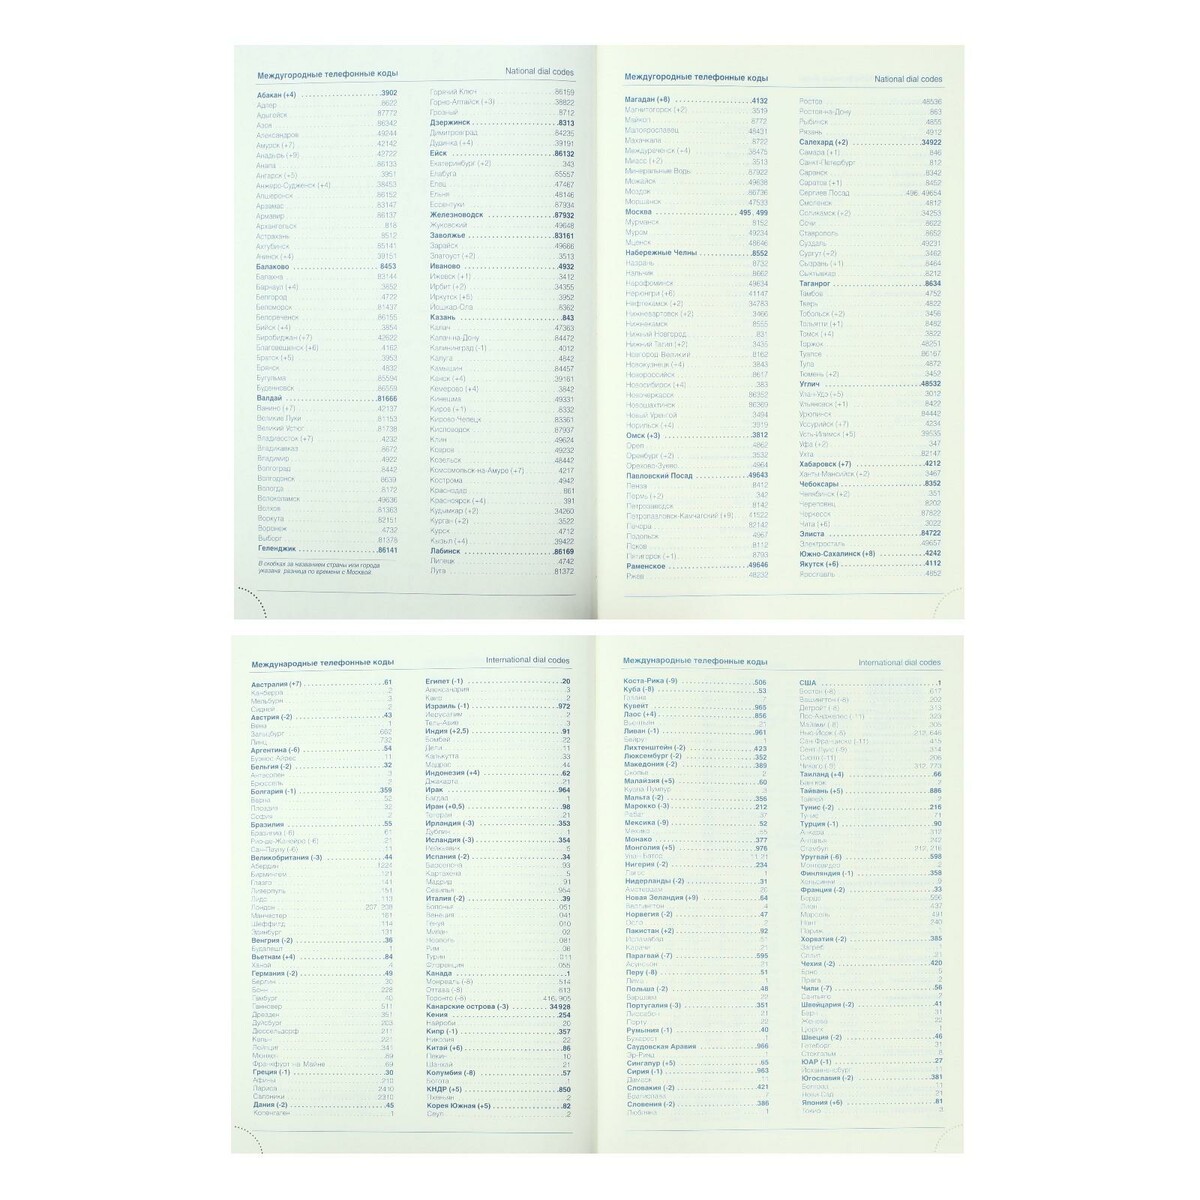 Междугородные телефонные коды
National dial codes
Абакан (+4) 3902
Адлер 8622
Адыгейск 87772
Азов 86342
Александров 49244
Амурск (+7) 42142
Анадырь (+9) 42722
Анапа 86133
Ангарск (+5) 3951
Анжеро-Судженск (+4) 38453
Апшеронск 86152
Арзамас 83147
Армавир 86137
Архангельск 818
Астрахань 8512
Ахтубинск 85141
Ачинск (+4) 39151
Балаково 8453
Балахна 83144
Барнаул (+4) 3852
Белгород 4722
Беломорск 81437
Белореченск 86155
Бийск (+4) 3854
Биробиджан (+7) 42622
Благовещенск (+6) 4162
Братск (+5) 3953
Брянск 4832
Бугульма 85594
Буденновск 86559
Валдай 81666
Ванино (+7) 42137
Великие Луки 81153
Великий Устюг 81738
Владивосток (+7) 4232
Владикавказ 8672
Владимир 4922
Волгоград 8442
Волгодонск 8639
Вологда 8172
Волоколамск 49636
Волхов 81363
Воркута 82151
Воронеж 4732
Выборг 81378
Геленджик 86141
В скобках за названием страны или города
указана разница по времени с Москвой
Горячий Ключ 86159
Горно-Алтайск (+3) 38822
Грозный 8712
Дзержинск 8313
Димитровград 84235
Дудинка (+4) 39191
Ейск 86132
Екатеринбург (+2) 343
Елабуга 85557
Елец 47467
Ельня 48146
Ессентуки 87934
Железноводск 87932
Жуковский 49648
Заволжье 83161
Зарайск 49666
Златоуст (+2) 3513
Иваново 4932
Ижевск (+1) 3412
Ирбит (+2) 34355
Иркутск (+5) 3952
Йошкар-Ола 8362
Казань 843
Калач 47363
Калач-на-Дону 84472
Калининград (-1) 4012
Калуга 4842
Камышин 84457
Канск (+4) 39161
Кемерово (+4) 3842
Кинешма 49331
Киров (+1) 8332
Кирово-Чепецк 83361
Кисловодск 87937
Клин 49624
Ковров 49232
Козельск 48442
Комсомольск-на-Амуре (+7) 4217
Кострома 4942
Краснодар 861
Красноярск (+4) 391
Кудымкар (+2) 34260
Курган (+2) 3522
Курск 4712
Кызыл (+4) 39422
Лабинск 86169
Липецк 4742
Луга 81372
Междугородные телефонные коды
National dial codes
Магадан (+8) 4132
Магнитогорск (+2) 3519
Майкоп 8772
Малоярославец 48431
Махачкала 8722
Междуреченск (+4) 38475
Миасс (+2) 3513
Минеральные Воды 87922
Можайск 49638
Моздок 86736
Моршанск 47533
Москва 495, 499
Мурманск 8152
Муром 49234
Мценск 48646
Набережные Челны 8552
Назрань 8732
Нальчик 8662
Нарофоминск 49634
Нерюнгри (+6) 41147
Нефтекамск (+2) 34783
Нижневартовск (+2) 3466
Нижнекамск 8555
Нижний Новгород 831
Нижний Тагил (+2) 3435
Новгород Великий 8162
Новокузнецк (+4) 3843
Новороссийск 8617
Новосибирск (+4) 383
Новочеркасск 86352
Новошахтинск 86369
Новый Уренгой 3494
Норильск (+4) 3919
Омск (+3) 3812
Орел 4862
Оренбург (+2) 3532
Орехово-Зуево 4964
Павловский Посад 49643
Пенза 8412
Пермь (+2) 342
Петрозаводск 8142
Петропавловск-Камчатский (+9) 41522
Печора 82142
Подольск 4967
Псков 8112
Пятигорск (+1) 8793
Раменское 49646
Ржев 48232
Ростов 48536
Ростов-на-Дону 863
Рыбинск 4855
Рязань 4912
Салехард (+2) 34922
Самара (+1) 846
Санкт-Петербург 812
Саранск 8342
Саратов (+1) 8452
Сергиев Посад 496, 49654
Смоленск 4812
Соликамск (+2) 34253
Сочи 8622
Ставрополь 8652
Суздаль 49231
Сургут (+2) 3462
Сызрань (+1) 8464
Сыктывкар 8212
Таганрог 8634
Тамбов 4752
Тверь 4822
Тобольск (+2) 3456
Тольятти (+1) 8482
Томск (+4) 3822
Торжок 48251
Туапсе 86167
Тула 4872
Тюмень (+2) 3452
Углич 48532
Улан-Удэ (+5) 3012
Ульяновск (+1) 8422
Урюпинск 84442
Уссурийск (+7) 4234
Усть-Илимск (+5) 39535
Уфа (+2) 347
Ухта 82147
Хабаровск (+7) 4212
Ханты-Мансийск (+2) 3467
Чебоксары 8352
Челябинск (+2) 351
Череповец 8202
Черкесск 87822
Чита (+6) 3022
Элиста 84722
Электросталь 49657
Южно-Сахалинск (+8) 4242
Якутск (+6) 4112
Ярославль 4852
Международные телефонные коды
International dial codes
Австралия (+7) 61
Канберра 2
Мельбурн 3
Сидней 2
Австрия (-2) 43
Вена
Зальцбург 662
Линц 732
Аргентина (-6) 54
Буэнос-Айрес 11
Бельгия (-2) 32
Антверпен 3
Брюссель 2
Болгария (-1) 359
Варна 52
Пловдив 32
София 2
Бразилия 55
Бразилиа (-6) 61
Рио-де-Жанейро (-6) 21
Сан-Паулу (-6) 11
Великобритания (-3) 44
Абердин 1224
Бирмингем 121
Глазго 141
Ливерпуль 151
Лидс 113
Лондон 207, 208
Манчестер 161
Шеффилд 114
Эдинбург 131
Венгрия (-2) 36
Будапешт 1
Вьетнам (+4) 84
Ханой 4
Германия (-2) 49
Берлин 30
Бонн 228
Гамбург 40
Ганновер 511
Дрезден 351
Дуйсбург 203
Дюссельдорф 211
Кельн 221
Лейпциг 341
Мюнхен 89
Франкфурт-на-Майне 69
Греция (-1) 30
Афины 210
Лариса 2410
Салоники 2310
Дания (-2) 45
Копенгаген 1
Египет (-1) 20
Александрия 3
Каир 2
Израиль (-1) 972
Иерусалим 2
Тель-Авив 3
Индия (+2,5) 91
Бомбей 22
Дели 11
Калькутта 33
Мадрас 44
Индонезия (+4) 62
Джакарта 21
Ирак 964
Багдад 1
Иран (+0,5) 98
Тегеран 21
Ирландия (-3) 353
Дублин 1
Исландия (-3) 354
Рейкьявик 5
Испания (-2) 34
Барселона 93
Картахена 5
Мадрид 91
Севилья 954
Италия (-2) 39
Болонья 051
Венеция 041
Генуя 010
Милан 02
Неаполь 081
Рим 06
Турин 011
Флоренция 055
Канада 1
Монреаль (-8) 514
Оттава (-8) 613
Торонто (-8) 416, 905
Канарские острова (-3) 34 928
Кения 254
Найроби 20
Кипр (-1) 357
Никозия 22
Китай (+6) 86
Пекин 10
Шанхай 21
Колумбия (-8) 57
Богота 1
КНДР (+5) 850
Пхеньян 2
Корея Южная (+5) 82
Сеул 2
Международные телефонные коды
International dial codes
Коста-Рика (-9) 506
Куба (-8) 53
Гавана 7
Кувейт 965
Лаос (+4) 856
Вьентьян 21
Ливан (-1) 961
Бейрут 1
Лихтенштейн (-2) 423
Люксембург (-2) 352
Македония (-2) 389
Скопье 2
Малайзия (+5) 60
Куала-Лумпур 3
Мальта (-2) 356
Марокко (-3) 212
Рабат 37
Мексика (-9) 52
Мехико 55
Монако 377
Монголия (+5) 976
Улан-Батор 11 21
Нигерия (-2) 234
Лагос 1
Нидерланды (-2) 31
Амстердам 20
Новая Зеландия (+9) 64
Веллингтон 4
Норвегия (-2) 47
Осло 2
Пакистан (+2) 92
Исламабад 51
Карачи 21
Парагвай (-7) 595
Асунсьон 21
Перу (-8) 51
Лима 1
Польша (-2) 48
Варшава 22
Португалия (-3) 351
Лиссабон 21
Порту 22
Румыния (-1) 40
Бухарест 1
Саудовская Аравия 966
Эр-Рияд 1
Сингапур (+5) 65
Сирия (-1) 963
Дамаск 11
Словакия (-2) 421
Братислава 7
Словения (-2) 386
Любляна 1
США 1
Бостон (-8) 617
Вашингтон (-8) 202
Детройт (-8) 313
Лос-Анджелес (-11) 323
Майами (-8) 305
Нью-Йорк (-8) 212, 646
Сан-Франциско (-11) 415
Сент-Луис (-9) 314
Сиэтл (-11) 206
Чикаго (-9) 312, 773
Таиланд (+4) 66
Бангкок 2
Тайвань (+5) 886
Тайпей 2
Тунис (-2) 216
Тунис 71
Турция (-1) 90
Анкара 312
Анталья 242
Стамбул 212, 216
Уругвай (-6) 598
Монтевидео 2
Финляндия (-1) 358
Хельсинки 9
Франция (-2) 33
Бордо 556
Лион 437
Марсель 491
Нант 240
Париж 1
Хорватия (-2) 385
Загреб 1
Сплит 21
Чехия (-2) 420
Брно 5
Прага 2
Чили (-7) 56
Сантьяго 2
Швейцария (-2) 41
Берн 31
Женева 22
Цюрих 1
Швеция (-2) 46
Гетеборг 31
Стокгольм 8
ЮАР (-1) 27
Йоханнесбург 11
Югославия (-2) 381
Белград 11
Нови-Сад 21
Япония (+6) 81
Токио 3